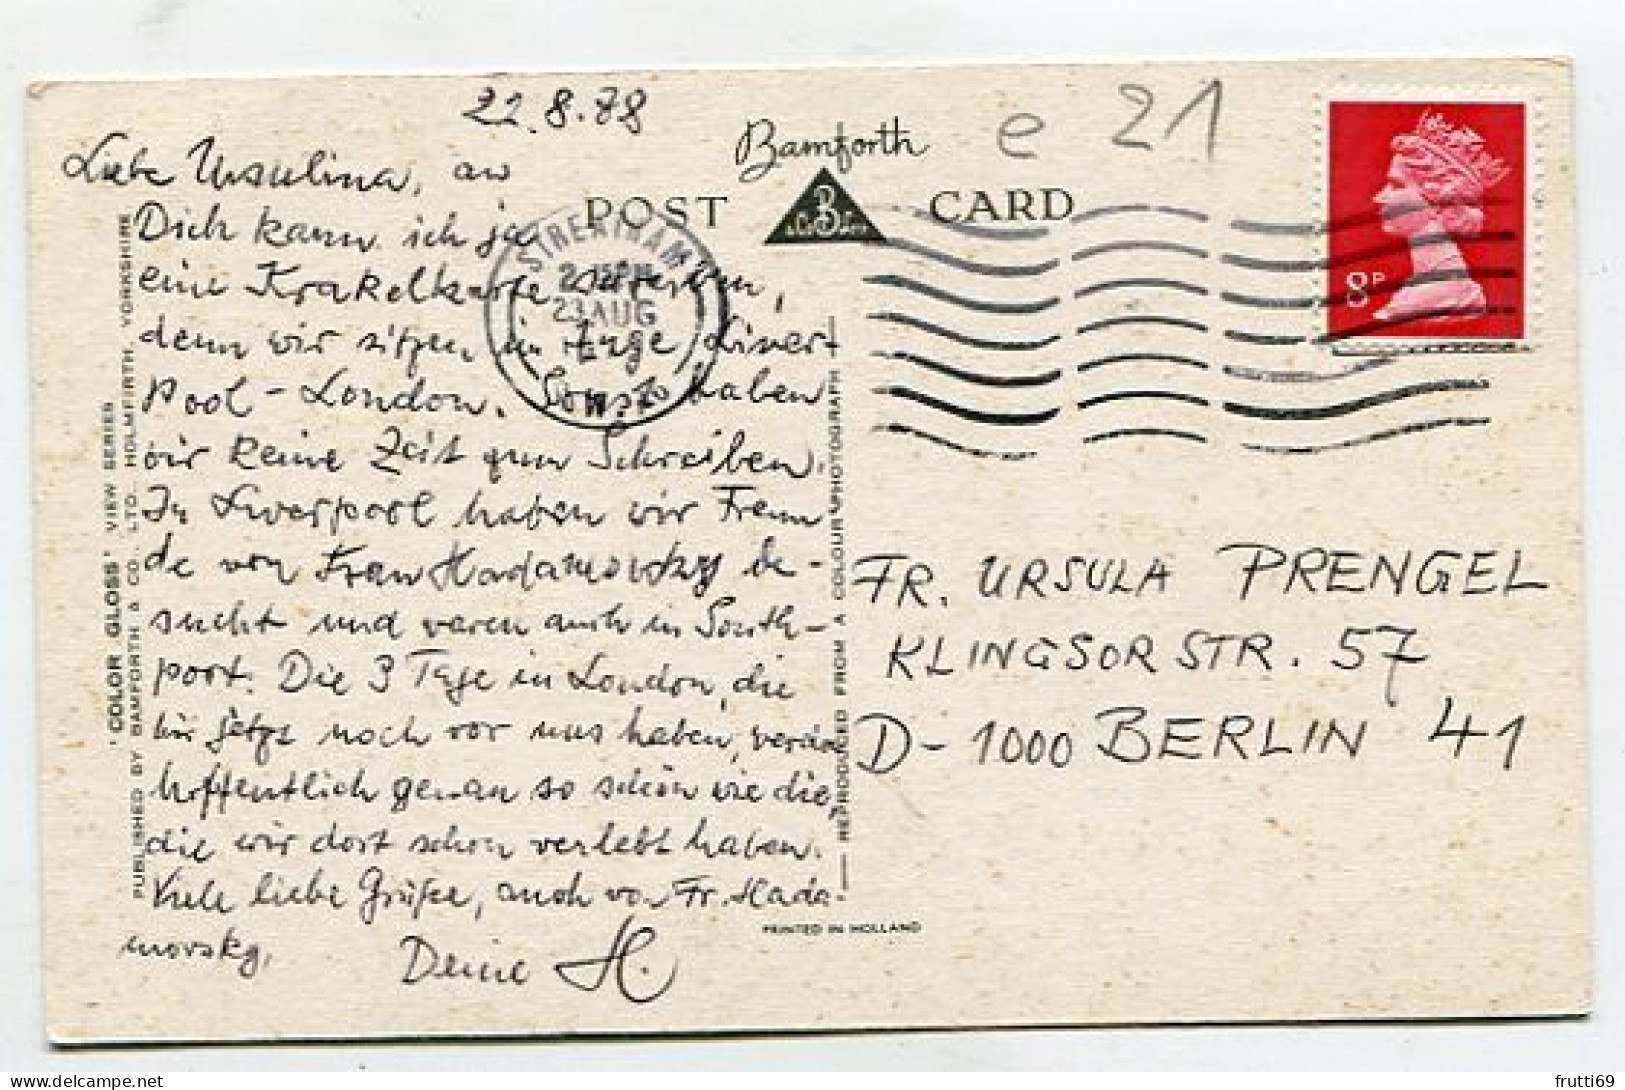 22.8.78
Liebe Ursulina, an
Dich kann ich ja
eine Krakelkarte schreiben,
denn wir sitzen im Zuge Liver-
pool-London. Sonst haben
wir keine Zeit zum Schreiben.
In Liverpool haben wir Freun
de von Frau Hadamovsky be-
sucht und waren auch in South-
port. Die 3 Tage in London, die
wir jetzt noch vor uns haben, werden
hoffentlich genau so schön wie die,
die wir dort schon verlebt haben.
Viele liebe Grüße, auch von Fr. Hada-
movsky,
Deine H.
'COLOR GLOSS' VIEW SERIES
PUBLISHED BY BAMFORTH & CO. LTD. HOLMFIRTH, YORKSHIRE
Bamforth
POST CARD
B
STREATHAM
PM
23 AUG
REPRODUCED FROM A COLOUR PHOTOGRAPH
PRINTED IN HOLLAND
e 21
8P
FR. URSULA PRENGEL
KLINGSORSTR. 57
D-1000 BERLIN 41
frutti69